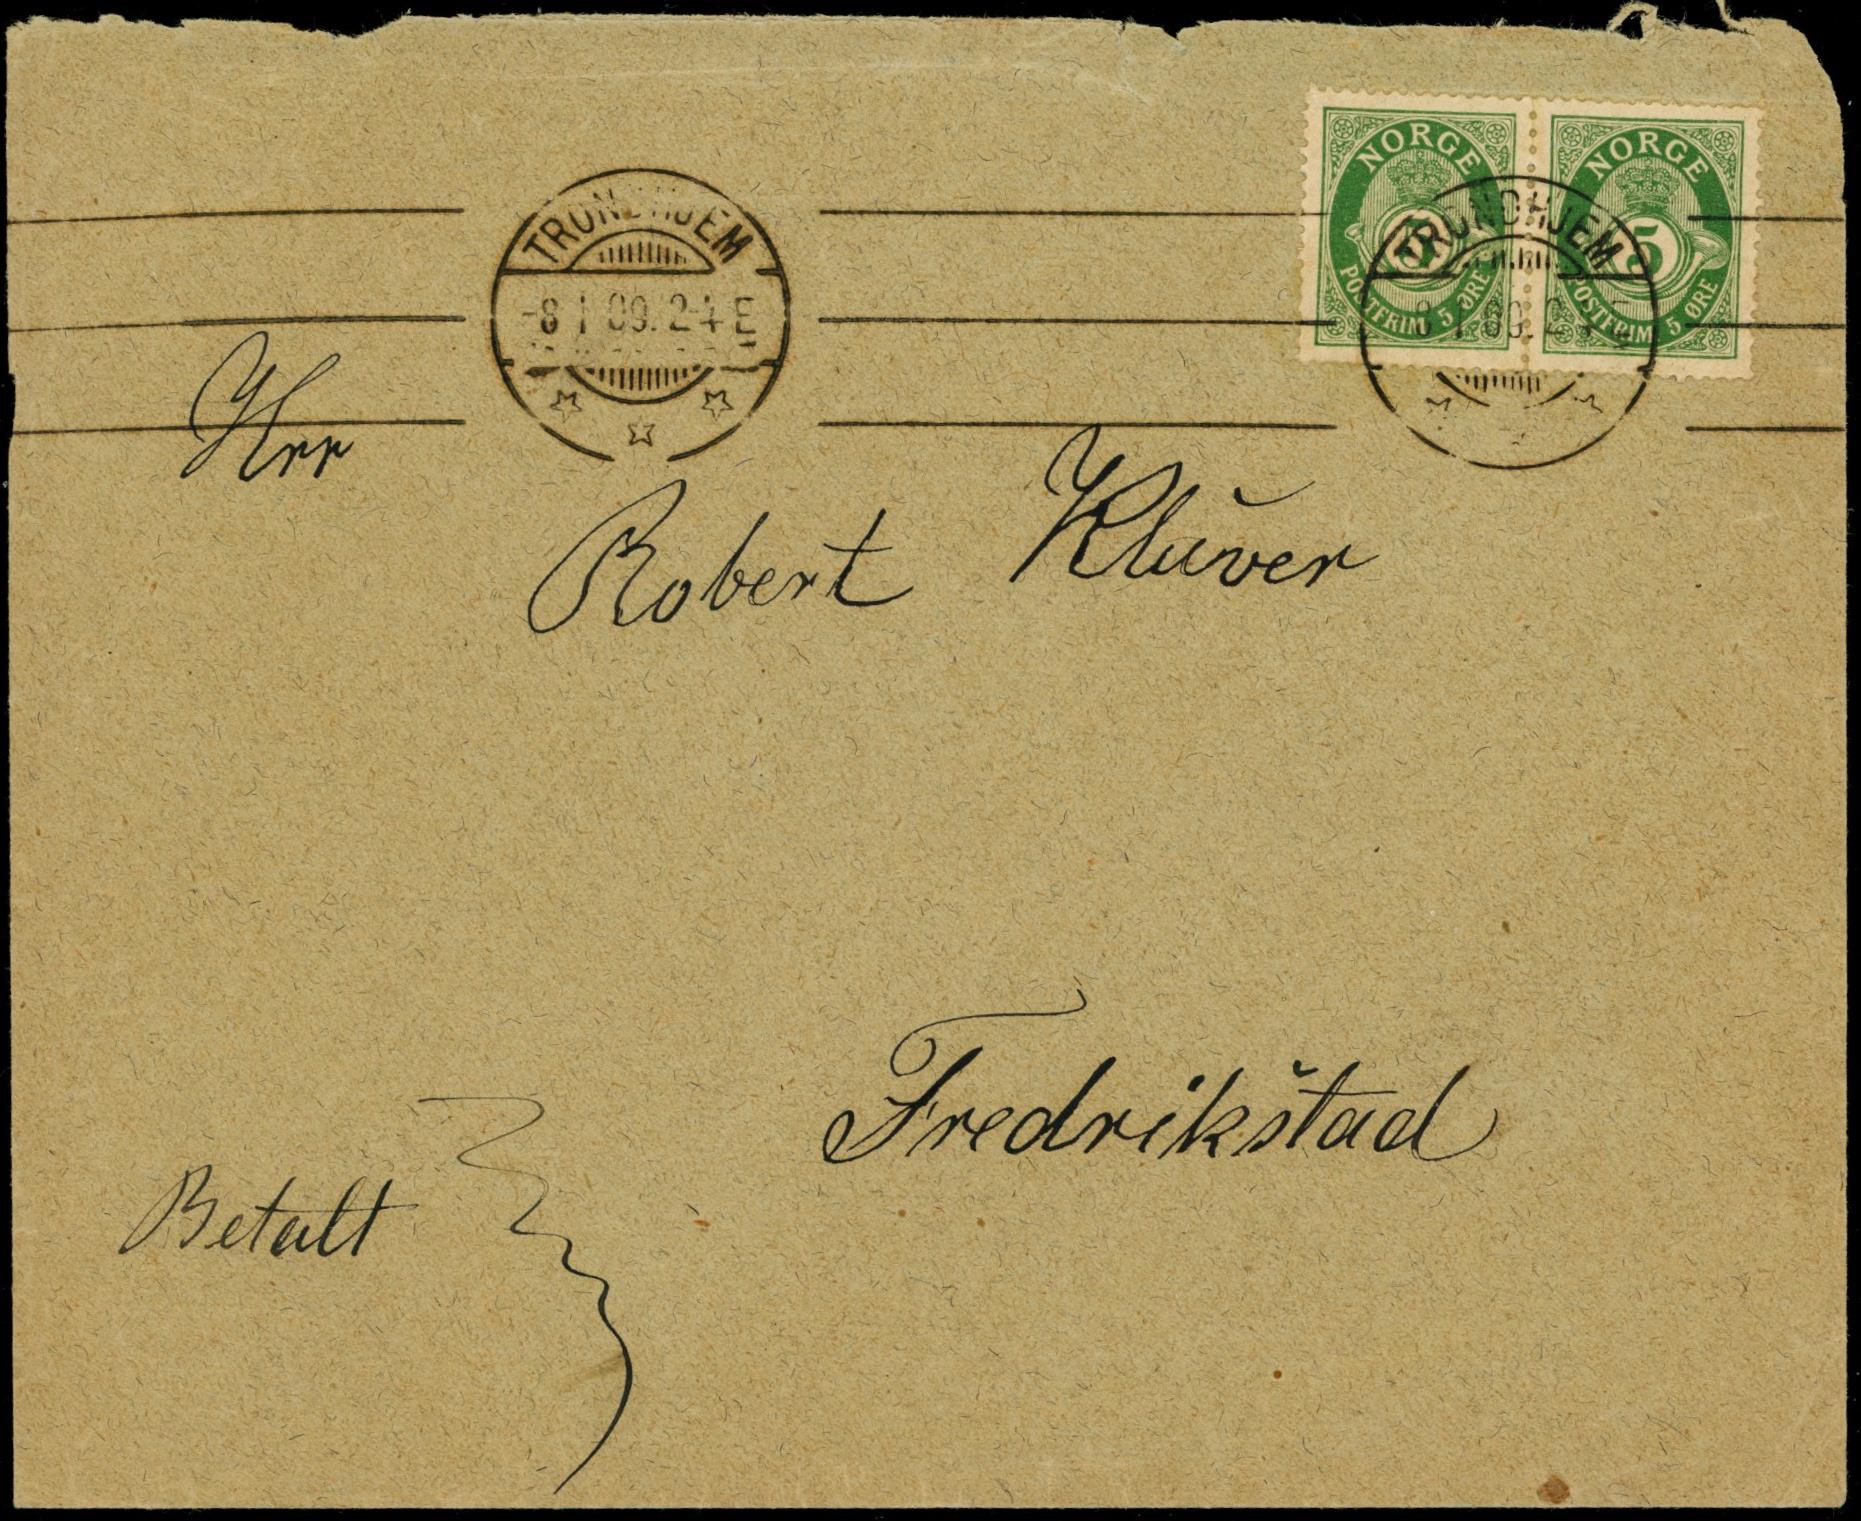 NORGE
POSTFRIM 5 ØRE
5
NORGE
POSTFRIM 5 ØRE
5
TRONDHJEM
-8 1 09. 2-4 E
TRONDHJEM
8 1 09. 2
Hrr
Robert Klüver
Fredrikstad
Betalt